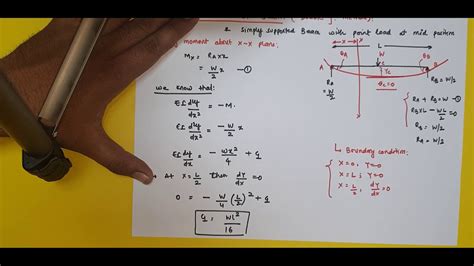 a simply supported Beam with point load at mid portion
moment about x-x plane:
Mx = RA x x
= W/2 x —①
we know that:
EI d²y/dx² = -M.
EI d²y/dx² = -W/2 x
EI dy/dx = -Wx²/4 + C1
At x = L/2 Then dy/dx = 0
0 = -W/4 (L/2)² + C1
C1 = WL²/16
x
L
W
θA
θB
A
B
C
yc
θc=0
x
RA = W/2
RB = W/2
RA + RB = W —①
RB x L - WL/2 = 0
RB = W/2
RA = W/2
↳ Boundary condition:
x = 0, y = 0
x = L ; y = 0
x = L/2, dy/dx = 0